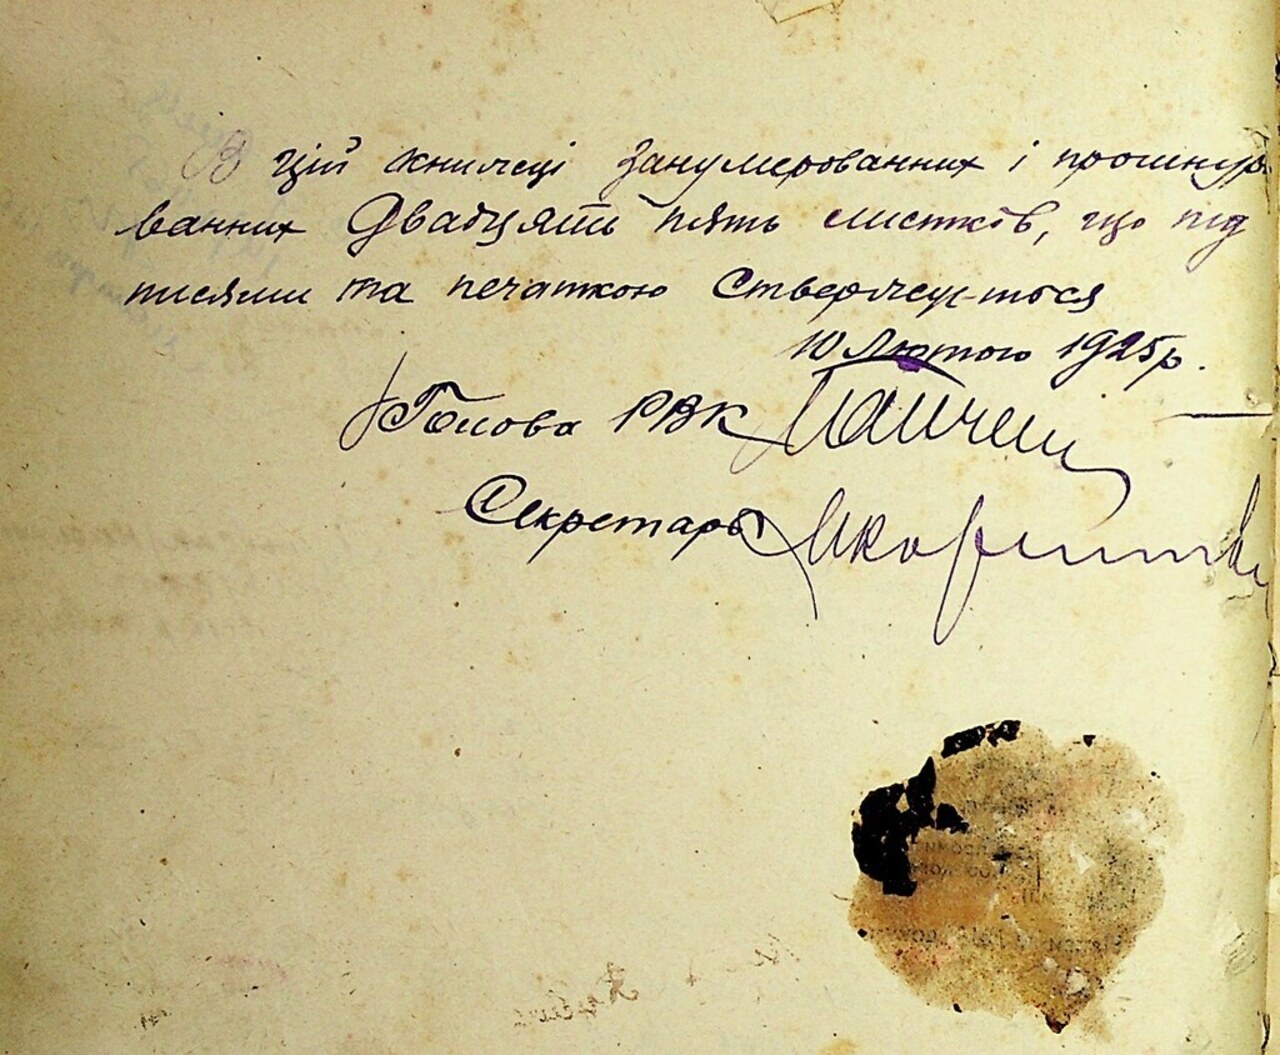 В цій книжці занумерованних і прошнуро
ванних Двадцять пять листків, що під
писями та печаткою Ствержується
10 Лютого 1925р.
Голова РВК
Секретарь